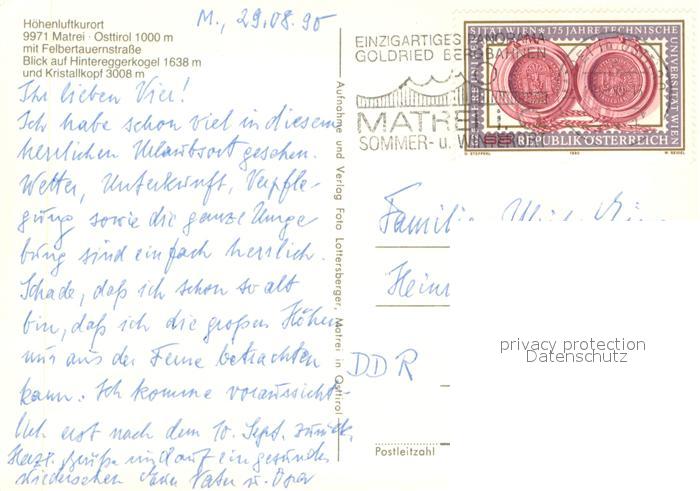 Höhenluftkurort
9971 Matrei · Osttirol 1000 m
mit Felbertauernstraße
Blick auf Hintereggerkogel 1638 m
und Kristallkopf 3008 m
M., 29.08.90
Ihr lieben Vier!
Ich habe schon viel in diesem
herrlichen Urlaubsort gesehen.
Wetter, Unterkunft, Verpfle-
gung sowie die ganze Umge
bung sind einfach herrlich.
Schade, daß ich schon so alt
bin, daß ich die großen Höhen
nur aus der Ferne betrachten
kann. Ich komme voraussicht-
lich erst nach dem 10. Sept. zurück.
Herzl. Grüße und auf ein gesundes
Wiedersehen Euer Vater u. Opa
Aufnahme und Verlag Foto Lottersberger, Matrei in Osttirol
EINZIGARTIGES PANORAMA
GOLDRIED BERGBAHNEN
MATREI
SOMMER- u. WINTER
175 JAHRE TECHNISCHE
UNIVERSITÄT WIEN
REPUBLIK ÖSTERREICH
Familie
DDR
Postleitzahl
privacy protection
Datenschutz